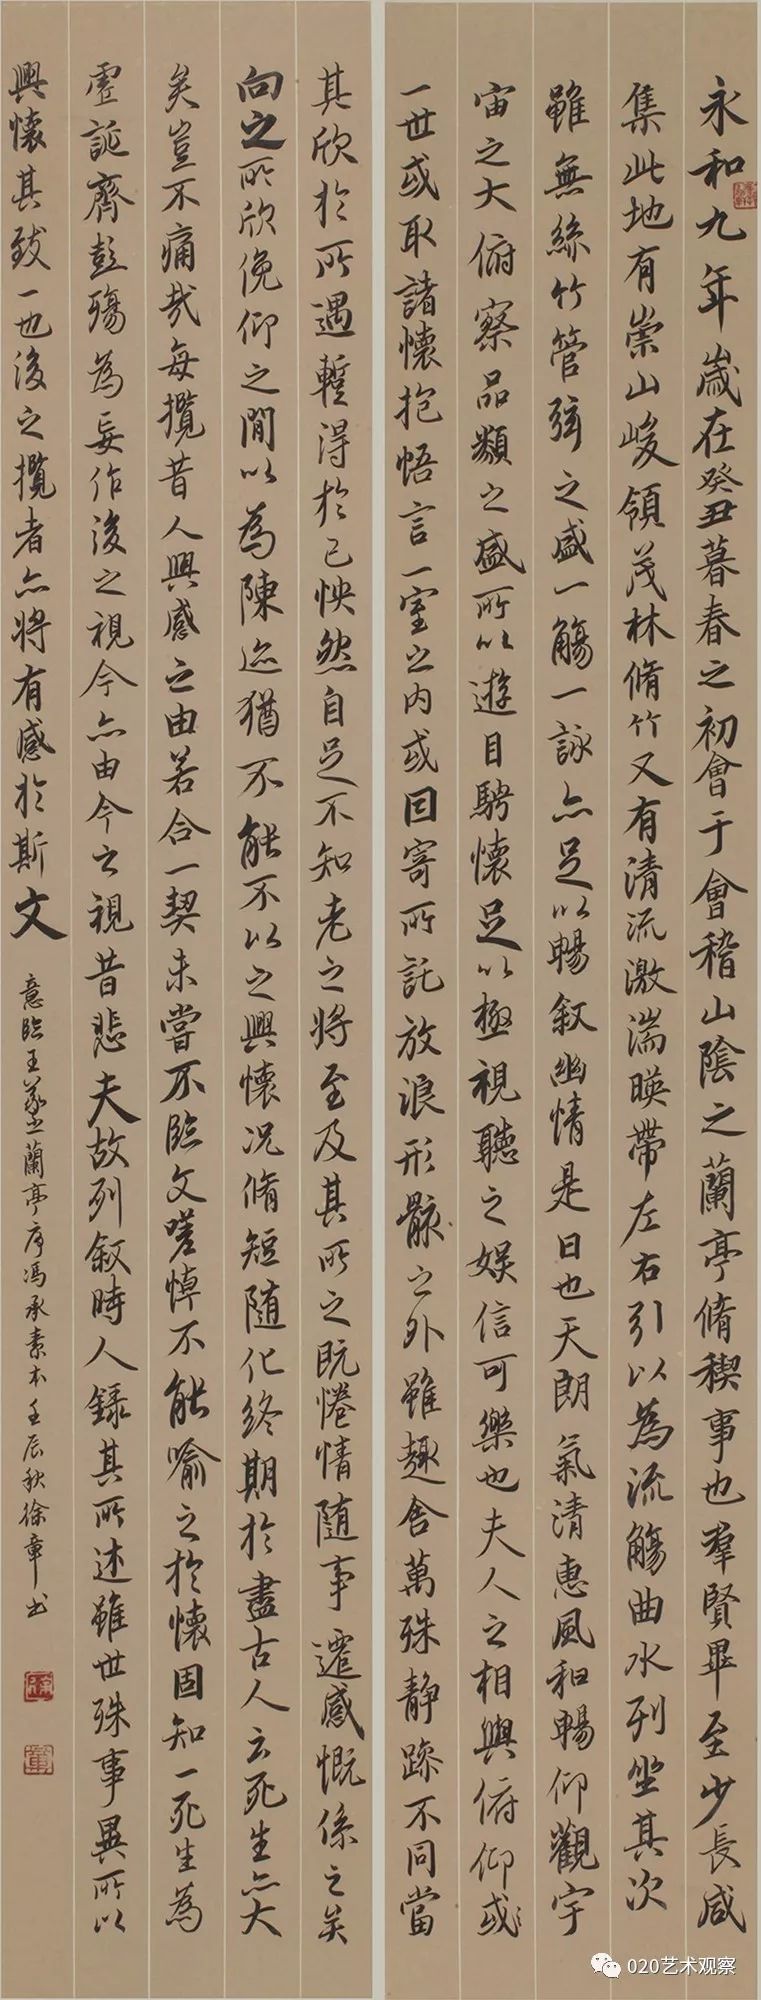 永和九年歲在癸丑暮春之初會于會稽山陰之蘭亭脩稧事也羣賢畢至少長咸
集此地有崇山峻領茂林脩竹又有清流激湍暎帶左右引以為流觴曲水列坐其次
雖無絲竹管弦之盛一觴一詠亦足以暢叙幽情是日也天朗氣清惠風和暢仰觀宇
宙之大俯察品類之盛所以遊目騁懷足以極視聽之娱信可樂也夫人之相與俯仰或
一世或取諸懷抱悟言一室之内或因寄所託放浪形骸之外雖趣舍萬殊静躁不同當
其欣於所遇蹔得於己怏然自足不知老之將至及其所之既惓情隨事遷感慨係之矣
向之所欣俛仰之閒以為陳迹猶不能不以之興懷况脩短隨化終期於盡古人云死生亦大
矣豈不痛哉每攬昔人興感之由若合一契未嘗不臨文嗟悼不能喻之於懷固知一死生為
虚誕齊彭殤為妄作後之視今亦由今之視昔悲夫故列叙時人録其所述雖世殊事異所以
興懷其致一也後之攬者亦將有感於斯文
意臨王羲之蘭亭序馮承素本壬辰秋徐章书
020艺术观察